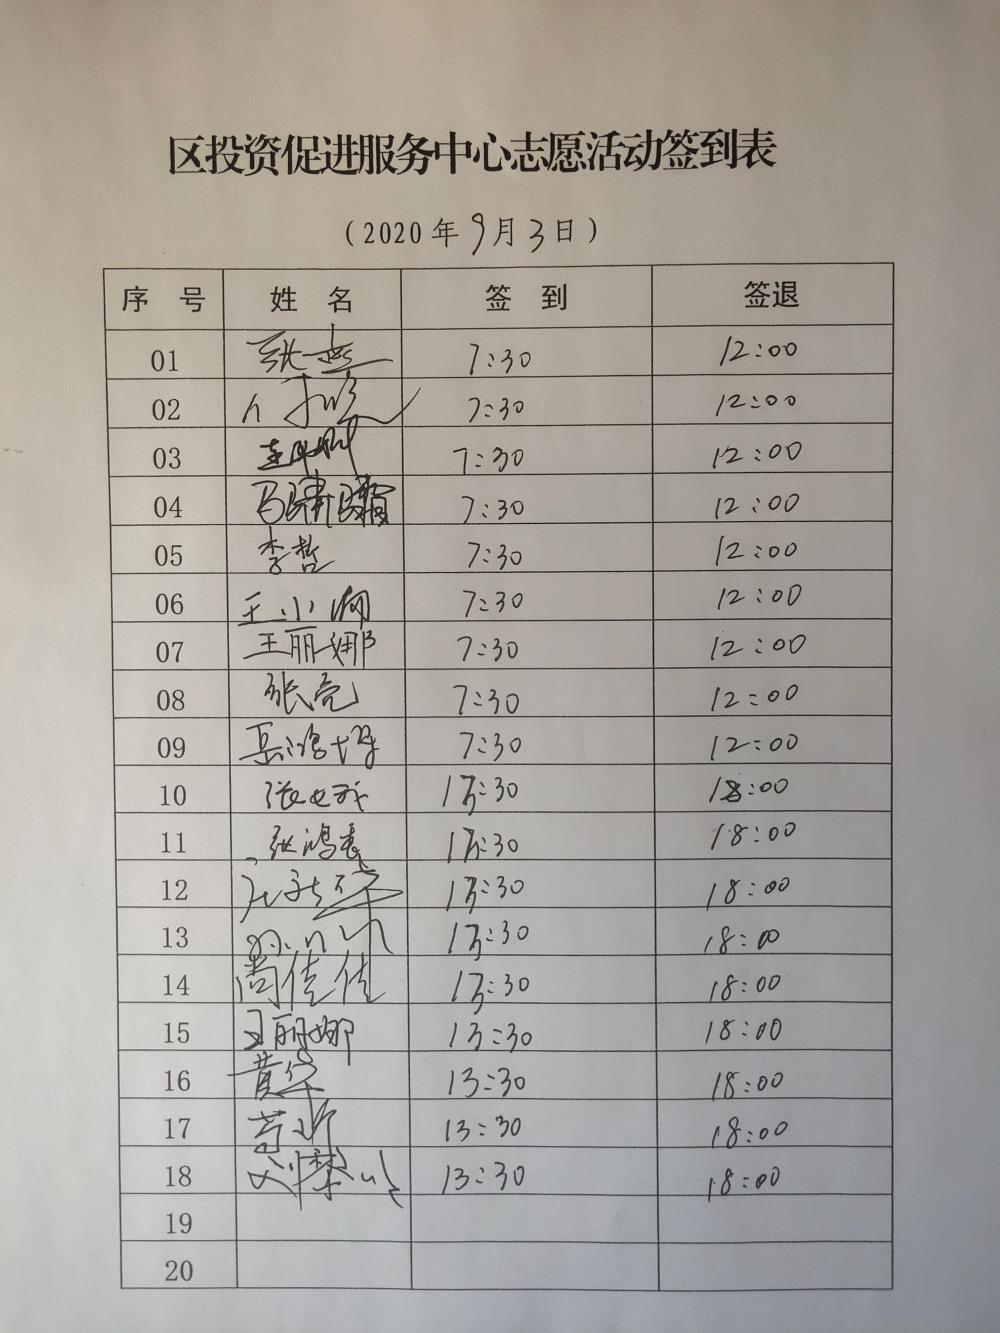 区投资促进服务中心志愿活动签到表
（2020年9月3日）
序 号 姓 名 签 到 签退
01 7:30 12:00
02 7:30 12:00
03 7:30 12:00
04 7:30 12:00
05 李哲 7:30 12:00
06 王小 7:30 12:00
07 王丽娜 7:30 12:00
08 张亮 7:30 12:00
09 7:30 12:00
10 13:30 18:00
11 张鸿 13:30 18:00
12 13:30 18:00
13 13:30 18:00
14 尚佳佳 13:30 18:00
15 王丽娜 13:30 18:00
16 13:30 18:00
17 13:30 18:00
18 13:30 18:00
19
20